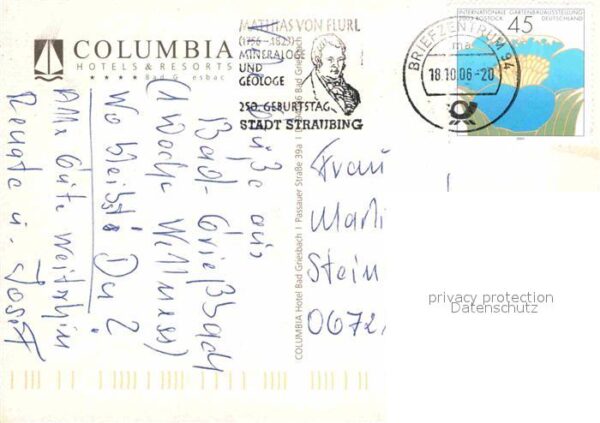 COLUMBIA
HOTELS & RESORTS
★ ★ ★ ★ Bad G iesbac
MATHIAS VON FLURL
(1756 - 1823)
MINERALOGE
UND
GEOLOGE
250. GEBURTSTAG
STADT STRAUBING
BRIEFZENTRUM 94
ma
18.10.06-20
INTERNATIONALE GARTENBAUAUSSTELLUNG
2003 ROSTOCK DEUTSCHLAND
45
Grüße aus
Bad-Grießbach
(1 Woche Wellness)
Wo bleibst Du?
Alles Gute Weiterhin
Renate u. Josef
COLUMBIA Hotel Bad Griesbach | Passauer Straße 39a | Bad Griesbach
Frau
Marti
Stein
0672
privacy protection
Datenschutz